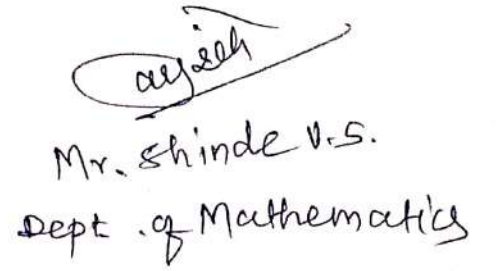 Mr. Shinde V.S.
Dept. of Mathematics